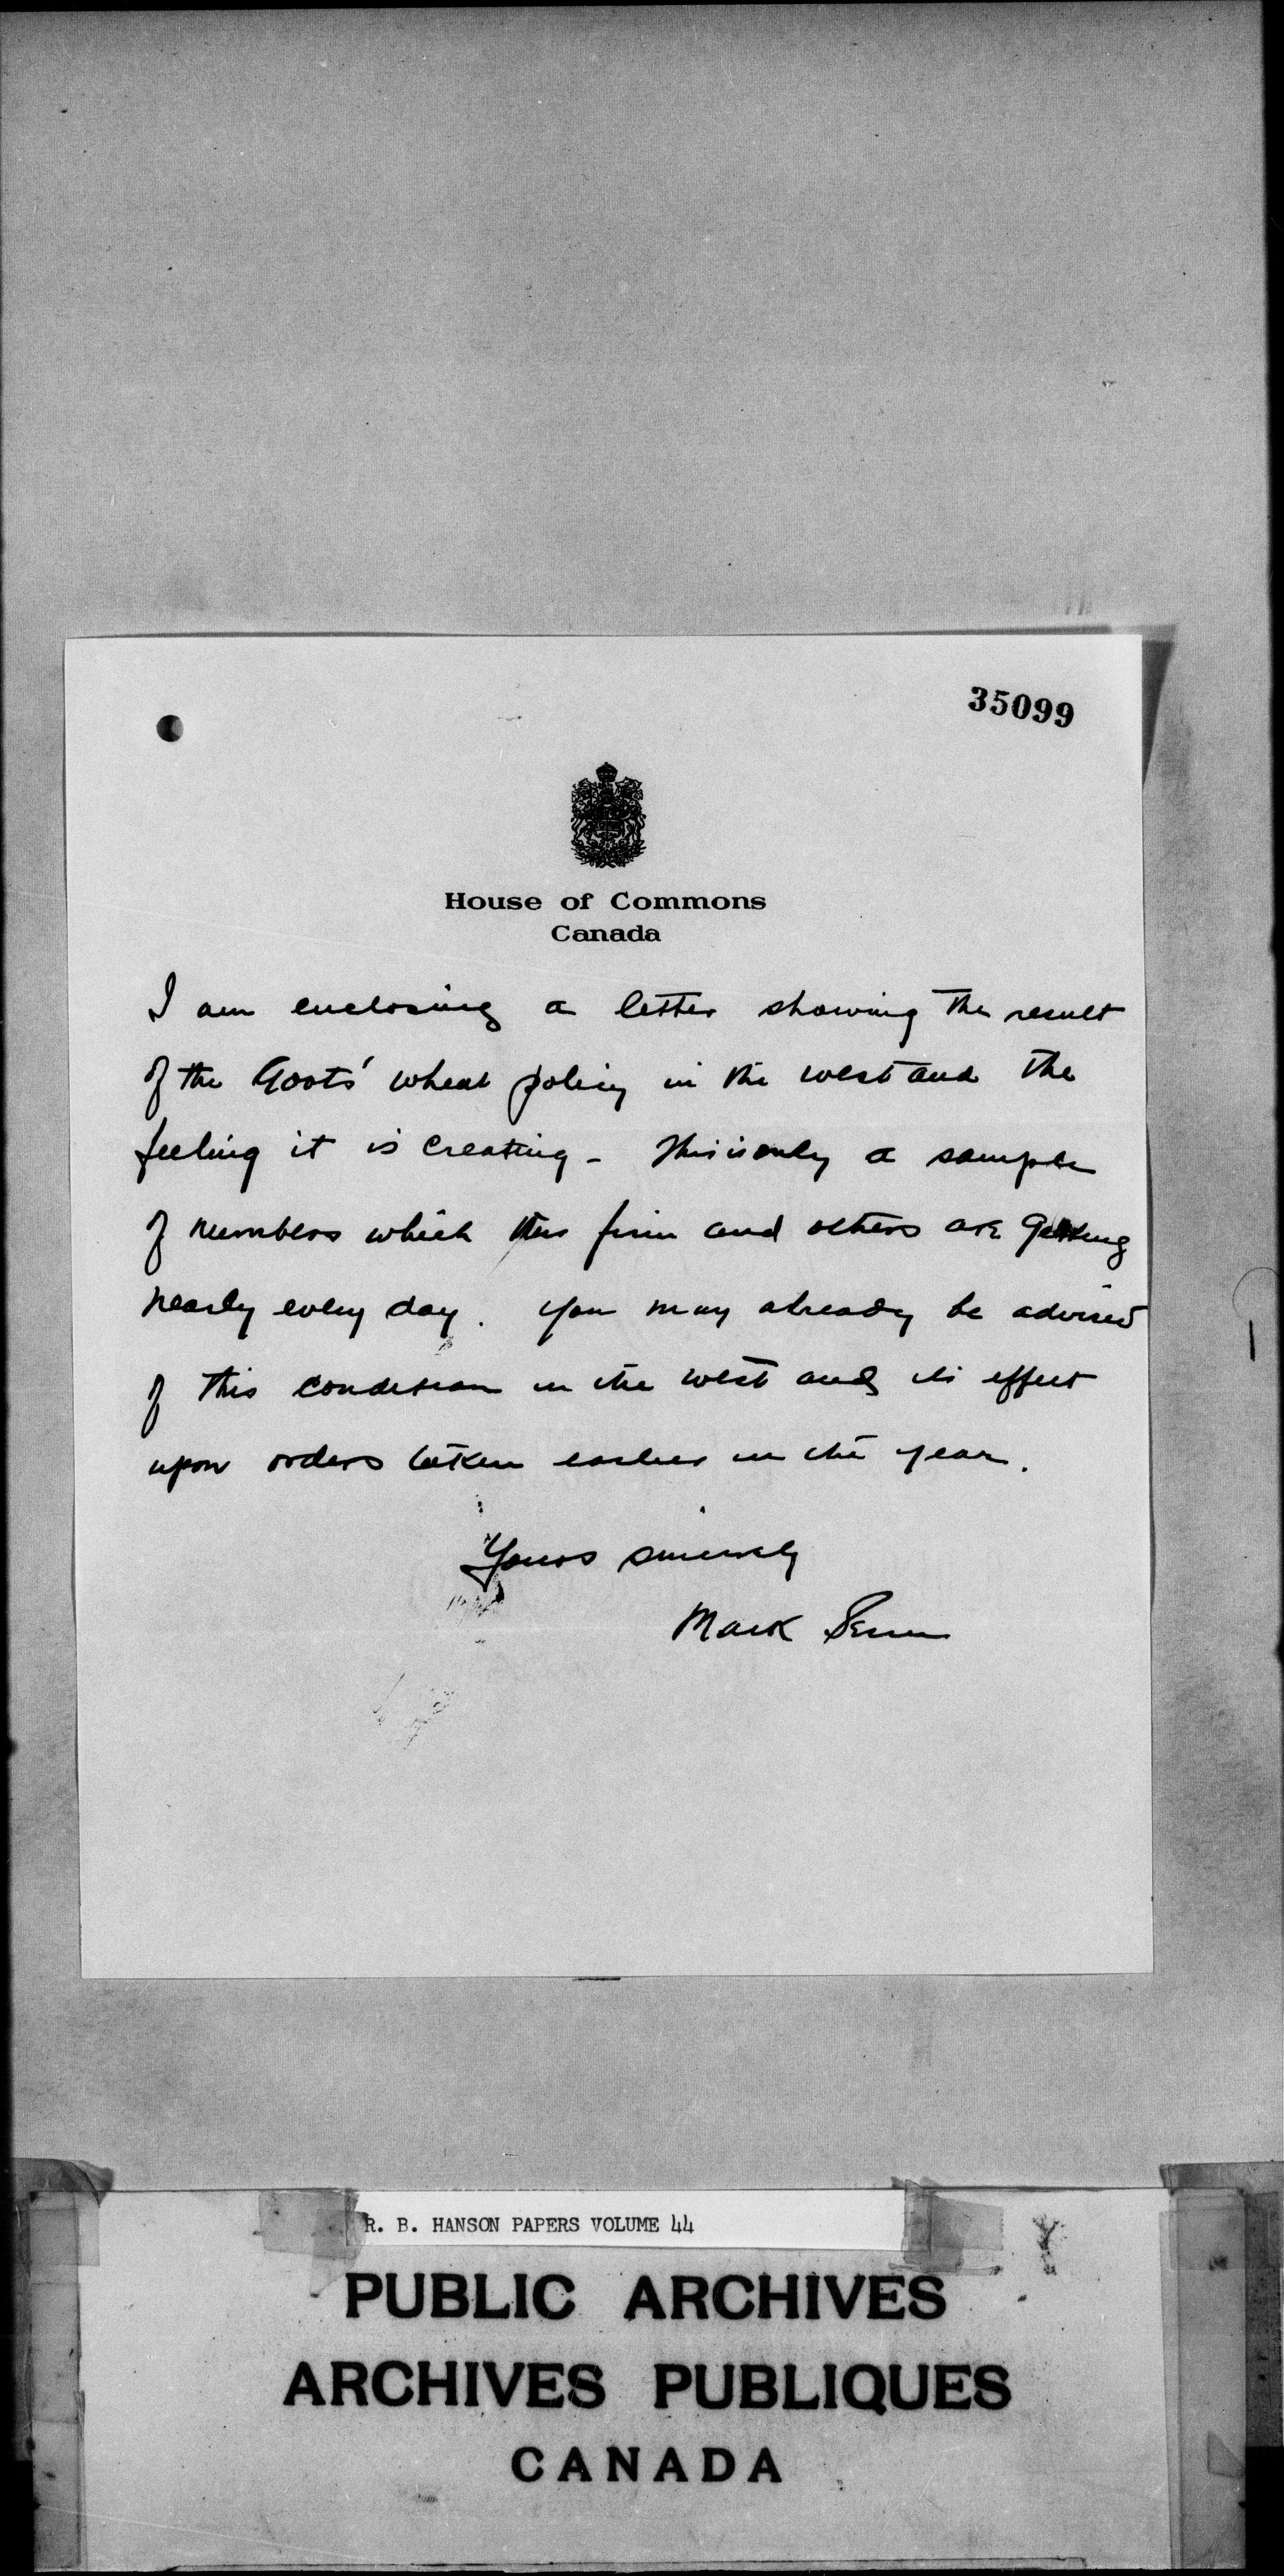 35099
House of Commons
Canada
I am enclosing a letter showing the result
of the Govts' wheat policy in the west and the
feeling it is creating - This is only a sample
of numbers which this firm and others are getting
nearly every day. You may already be advised
of this condition in the west and its effect
upon orders taken earlier in the year.
Yours sincerely
Mark Senn
R. B. HANSON PAPERS VOLUME 44
PUBLIC ARCHIVES
ARCHIVES PUBLIQUES
CANADA